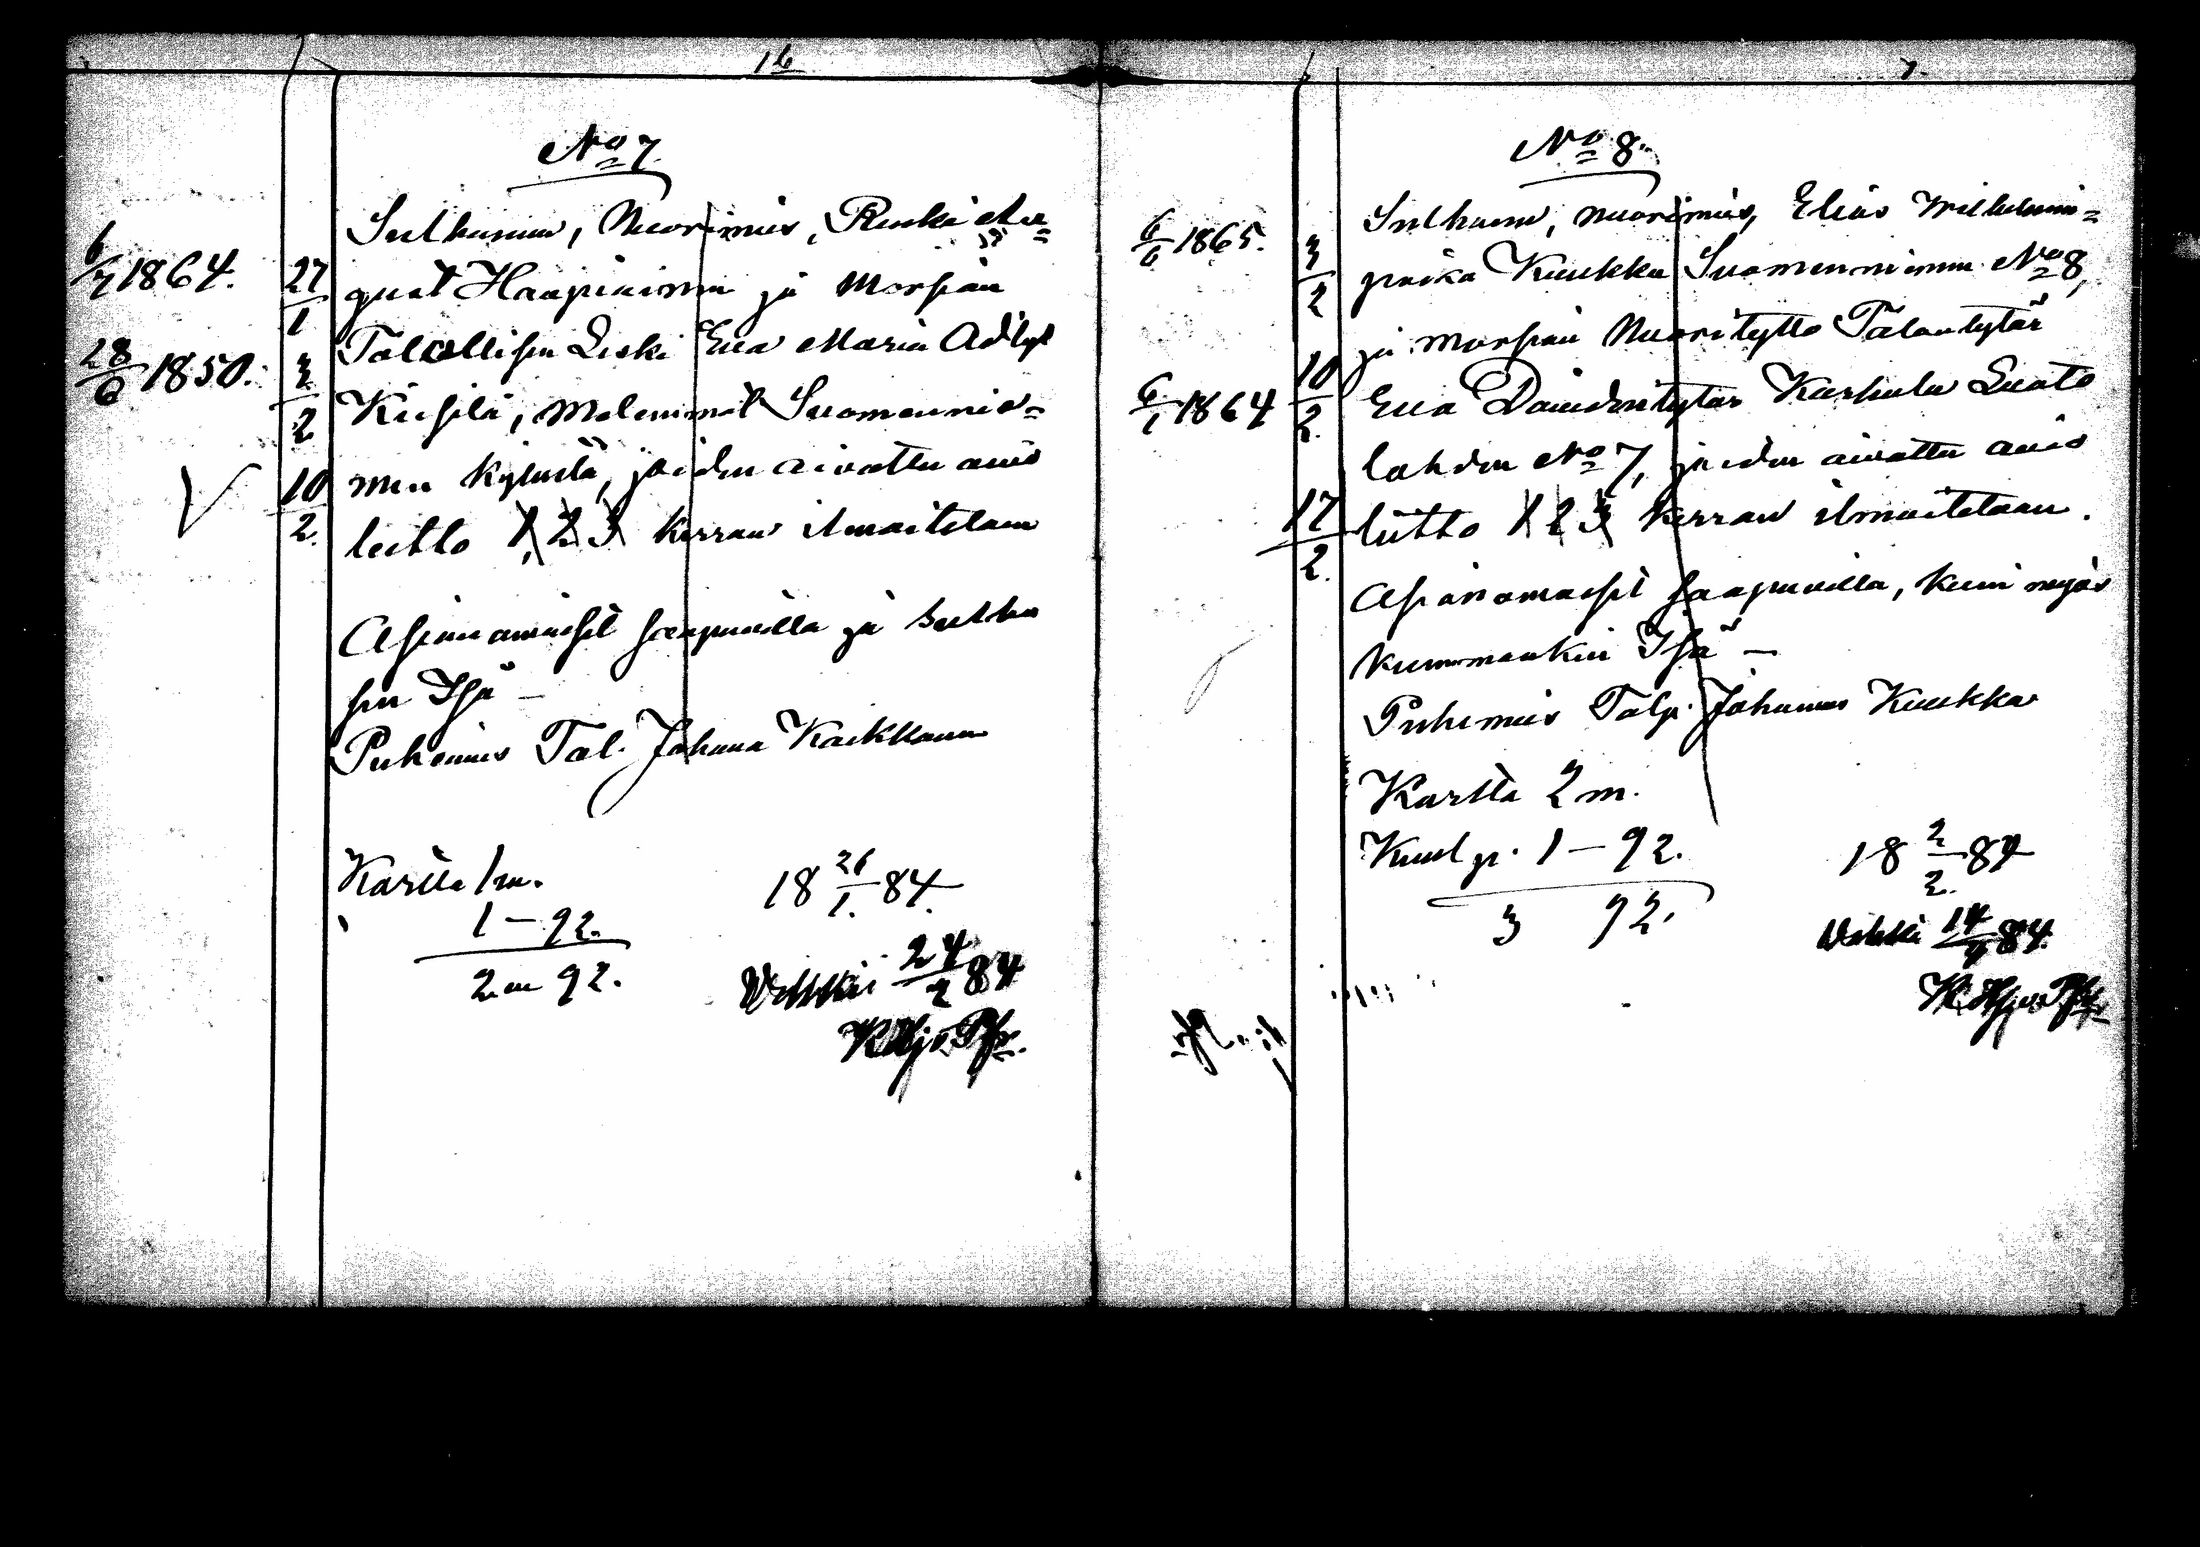 16
No 7.
6/7 1864.
27/1
28/6 1850.
3/2
10/2.
Sulhanen, Nuorimies, Renki Au=
gust Haapiainen ja Morsian
Talollisen Leski Eva Maria Ad:tyt
Kiesilä, Molemmat Suomennie=
men kylästä, joiden aivottu avio
liitto 1, 2, 3 kerran ilmoitetaan
Asianomaiset saapuvilla ja Sulha
sen Isä —
Puhemies Tal. Johana Kaikkonen
Kartta 1 m.
1 — 92.
2 m 92.
18 26/1. 84.
Vihkii 24/2 84
7.
No 8.
6/6 1865.
3/2
6/1 1864
10/2.
17/2.
Sulhanen, nuorimies, Elias Wilhelmin=
poika Kuukka Suomenniemen No 8,
ja morsian Nuorityttö Talontytär
Eva Davidintytär Karhula Luoto
lahden No 7, joiden aivottu avio
liitto 1 2 3 kerran ilmoitetaan.
Asianomaiset saapuvilla, kuin myös
kummankin Isä —
Puhemies Talp. Johannes Kuukka
Kartta 2 m.
Kuul p. 1 — 92.
3 92.
18 2/2. 84
Vihki 14/4 84.